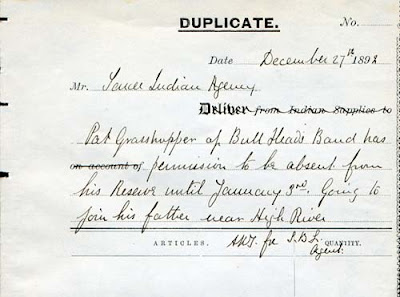 DUPLICATE. No.
Date December 27th 1898
Mr. Sarcee Indian Agency
Deliver from Indian Supplies to
Pat Grasshopper of Bull Head's Band has
on account of permission to be absent from
his Reserve until January 3rd. Going to
join his father near High River
ARTICLES. QUANTITY.
Agent.